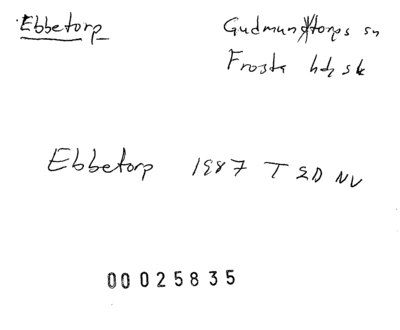 Ebbetorp
Gudmundtorps sn
Frosta hd sk
Ebbetorp 1987 T ED NV
00025835